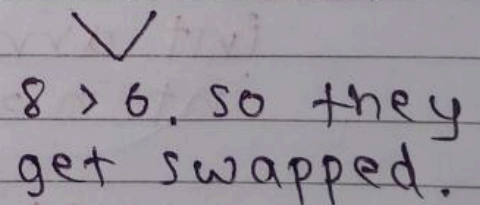 8 > 6. so they
get swapped.